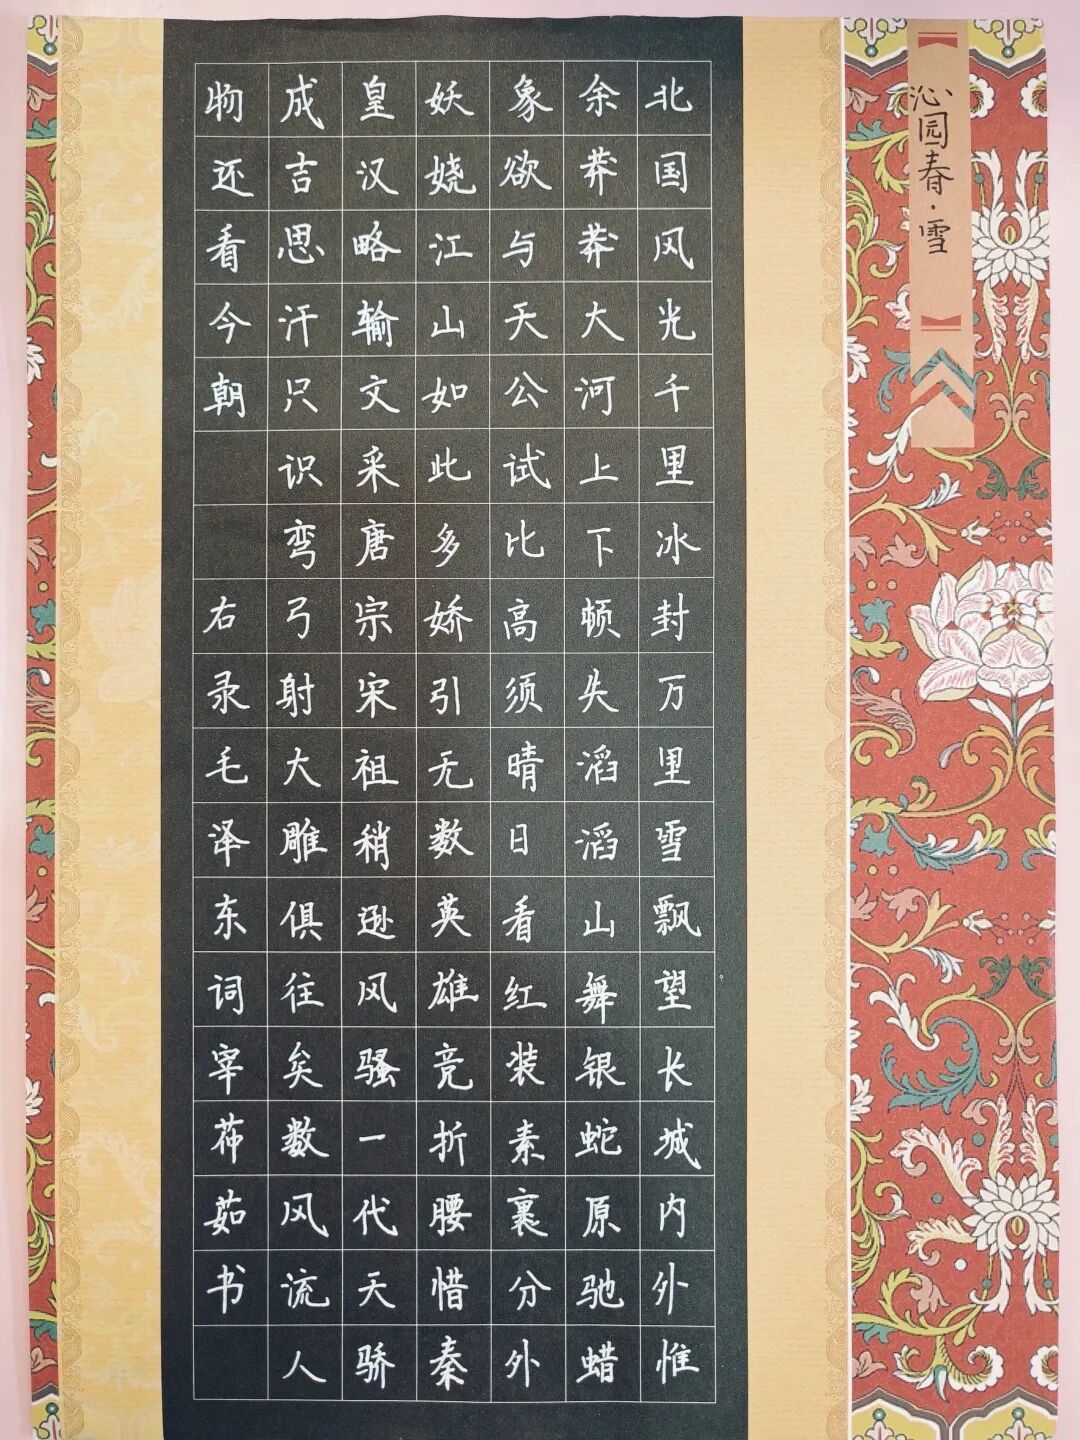 沁园春·雪
北国风光千里冰封万里雪飘望长城内外惟
余莽莽大河上下顿失滔滔山舞银蛇原驰蜡
象欲与天公试比高须晴日看红装素裹分外
妖娆江山如此多娇引无数英雄竞折腰惜秦
皇汉略输文采唐宗宋祖稍逊风骚一代天骄
成吉思汗只识弯弓射大雕俱往矣数风流人
物还看今朝 右录毛泽东词宰茹书